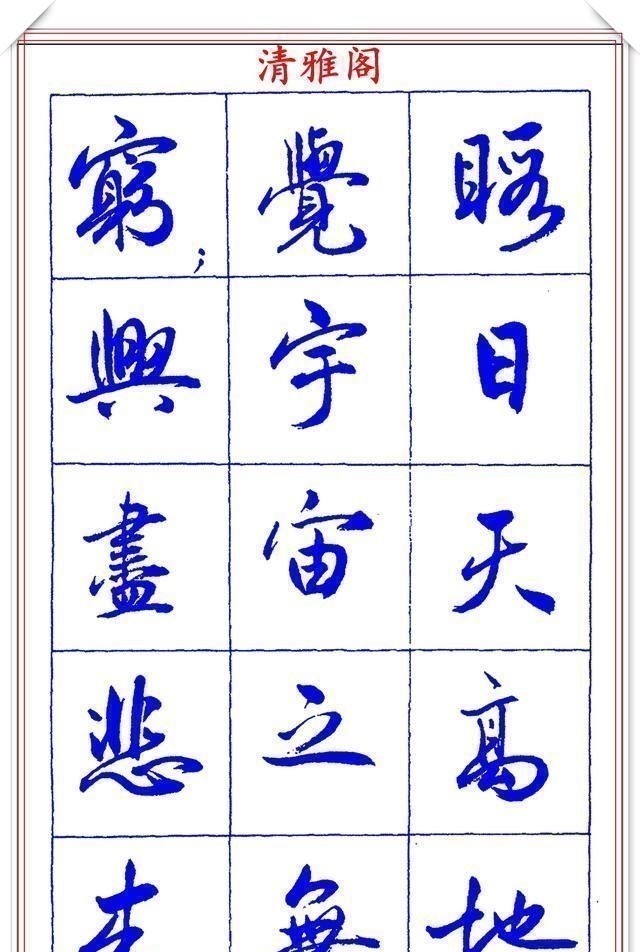 清雅阁
暇日天高地
覺宇宙之無
窮;興盡悲来